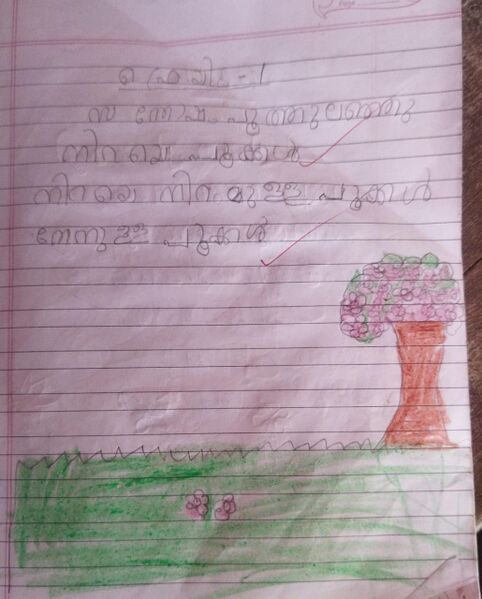 സന്തോഷം പൂത്തുലഞ്ഞു
നിറയെ പൂക്കൾ
നിറയെ നിറമുള്ള പൂക്കൾ
തേനുള്ള പൂക്കൾ